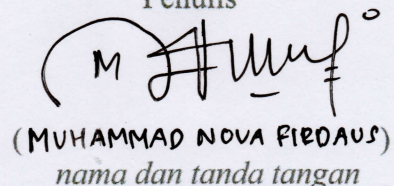 Penulis
M
(MUHAMMAD NOVA FIRDAUS)
nama dan tanda tangan